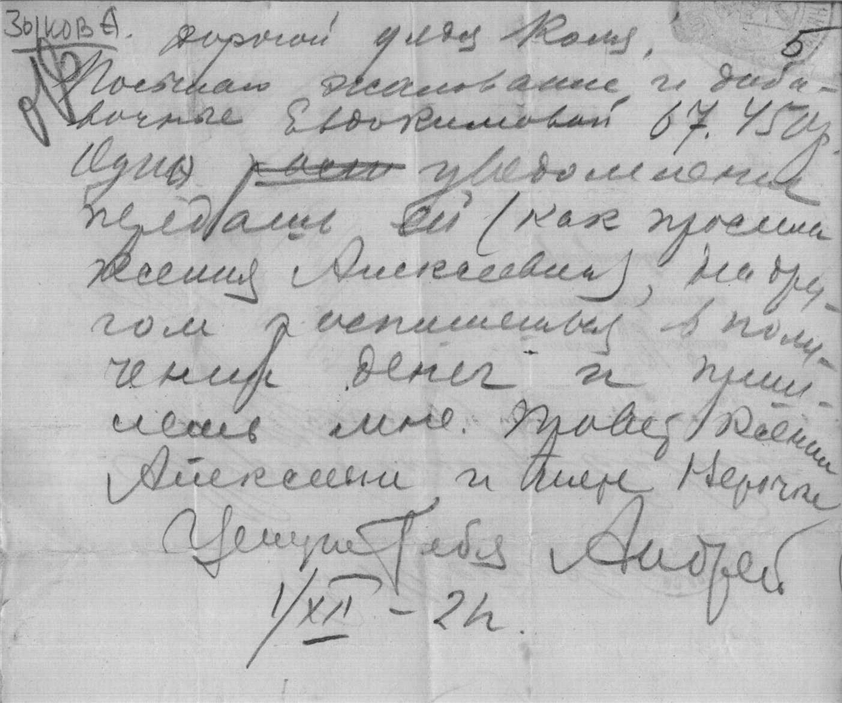 Зыков А.
Дорогой дядя Коля, 5
Посылаю жалование и доба-
вочные Евдокимовой 67.450р.
Одно уведомление
передашь ей (как просила
Ксения Алексеевна), на дру-
гом распишешься в полу-
чении денег и приш-
лешь мне. Привет Ксении
Алексеевне и
Целую Тебя Андрей
1/XII – 21.